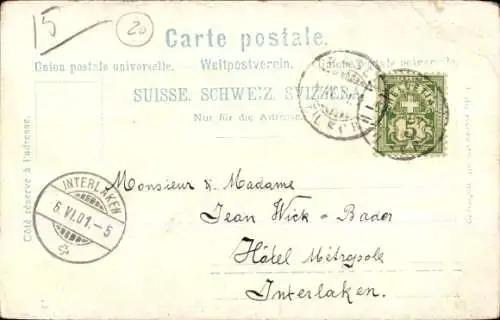 15
20
Carte postale.
Union postale universelle. Weltpostverein.
SUISSE. SCHWEIZ. SVIZZERA
Nur für die Adresse.
HELVETIA
5
Côté réservé à l'adresse.
INTERLAKEN
6.VI.01.-5
Monsieur & Madame
Jean Wick-Bader
Hôtel Métropole
Interlaken.